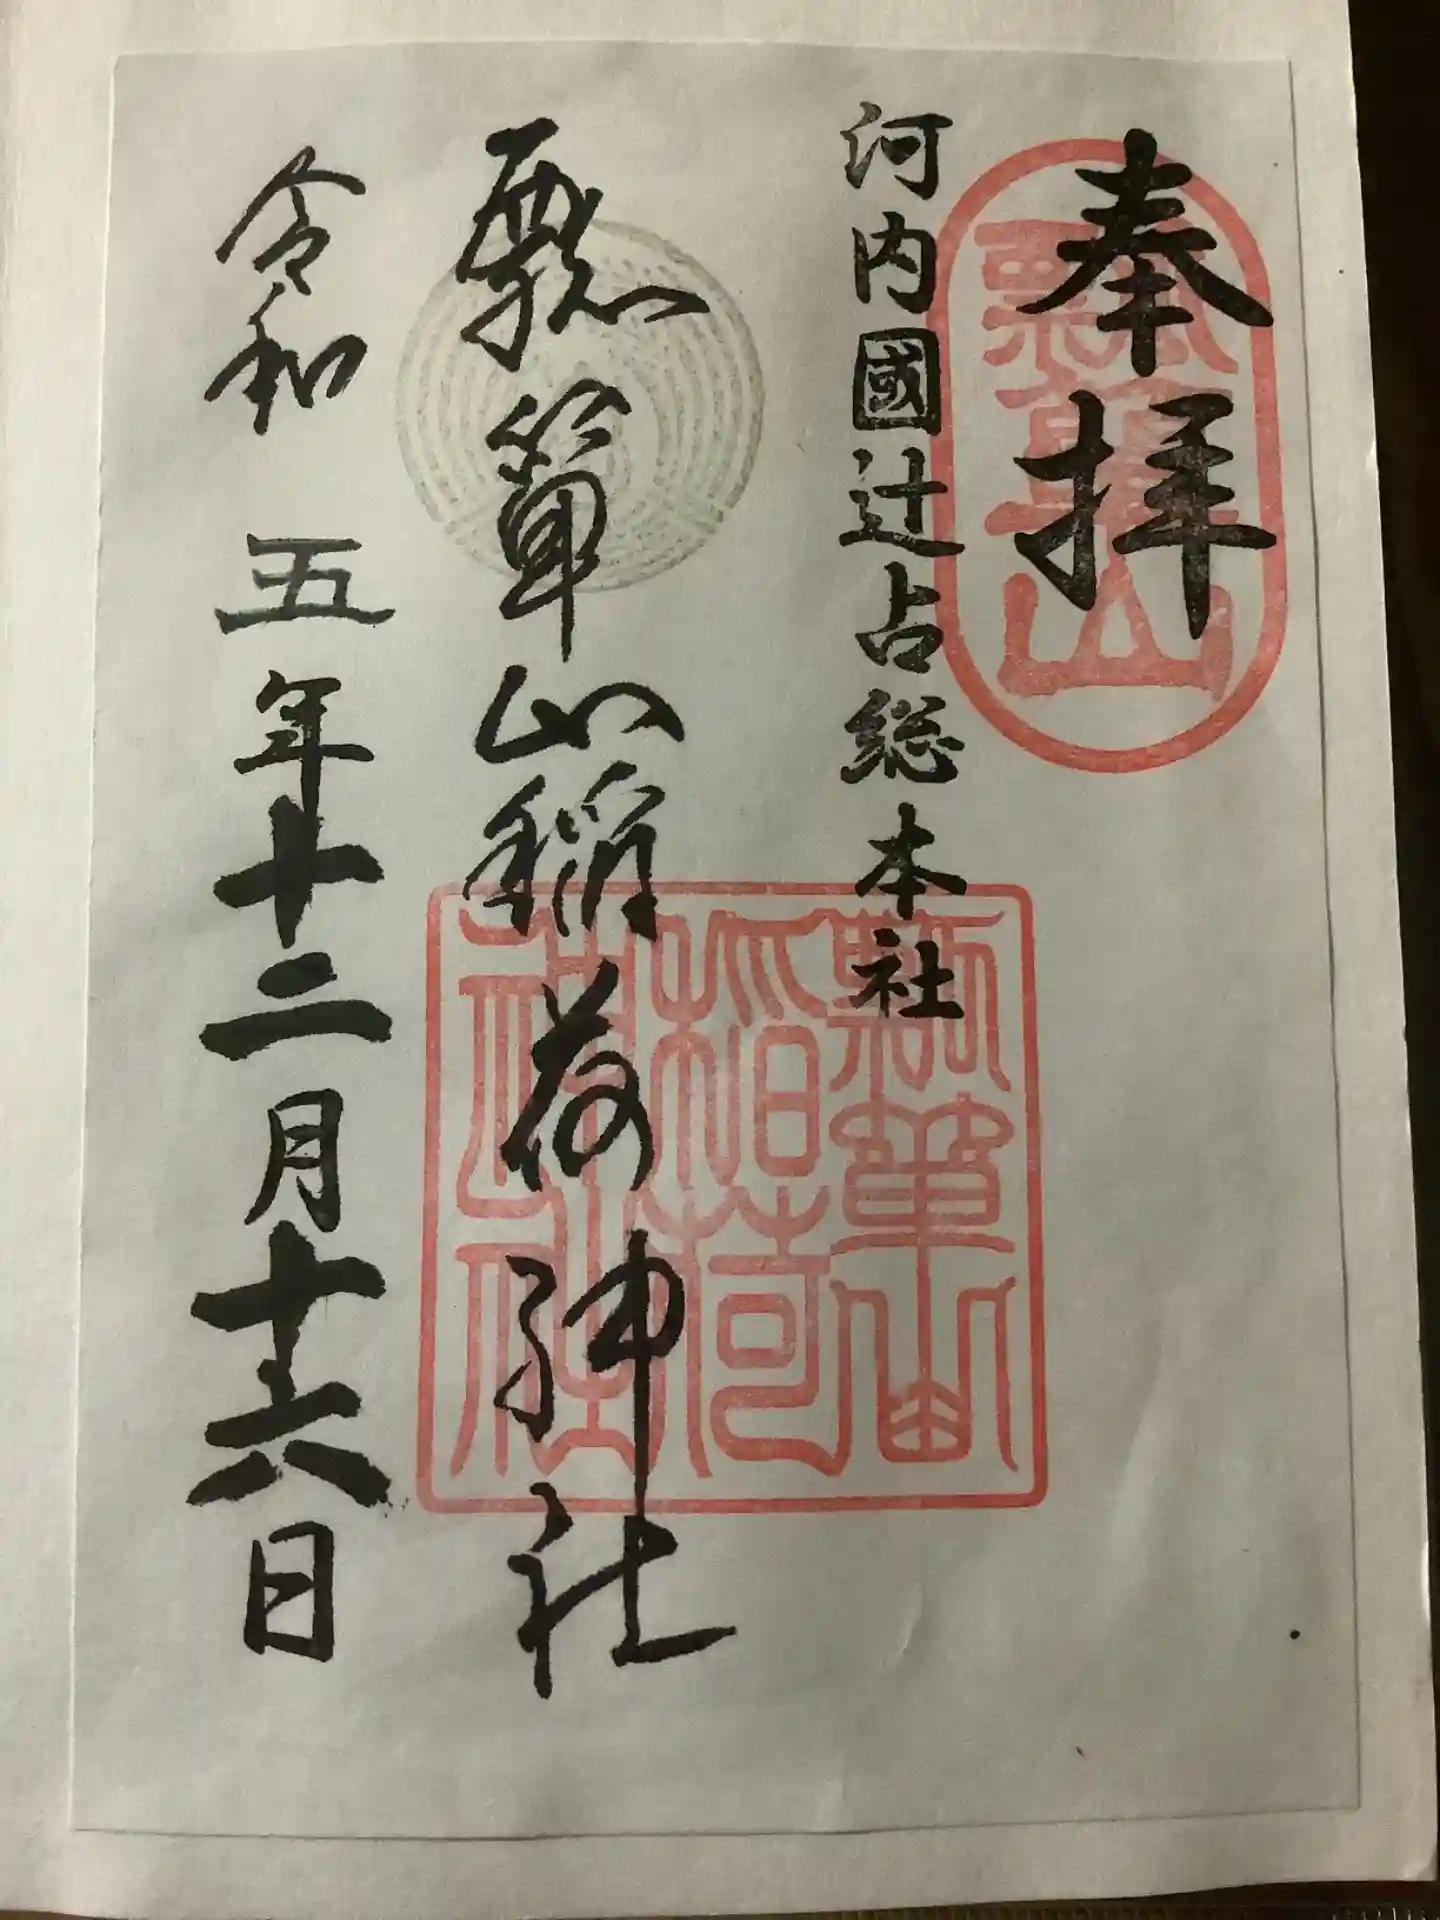 奉拝
瓢箪山
河内國辻占総本社
瓢箪山稲荷神社
瓢箪山
稲荷
神社
令和五年十二月十六日